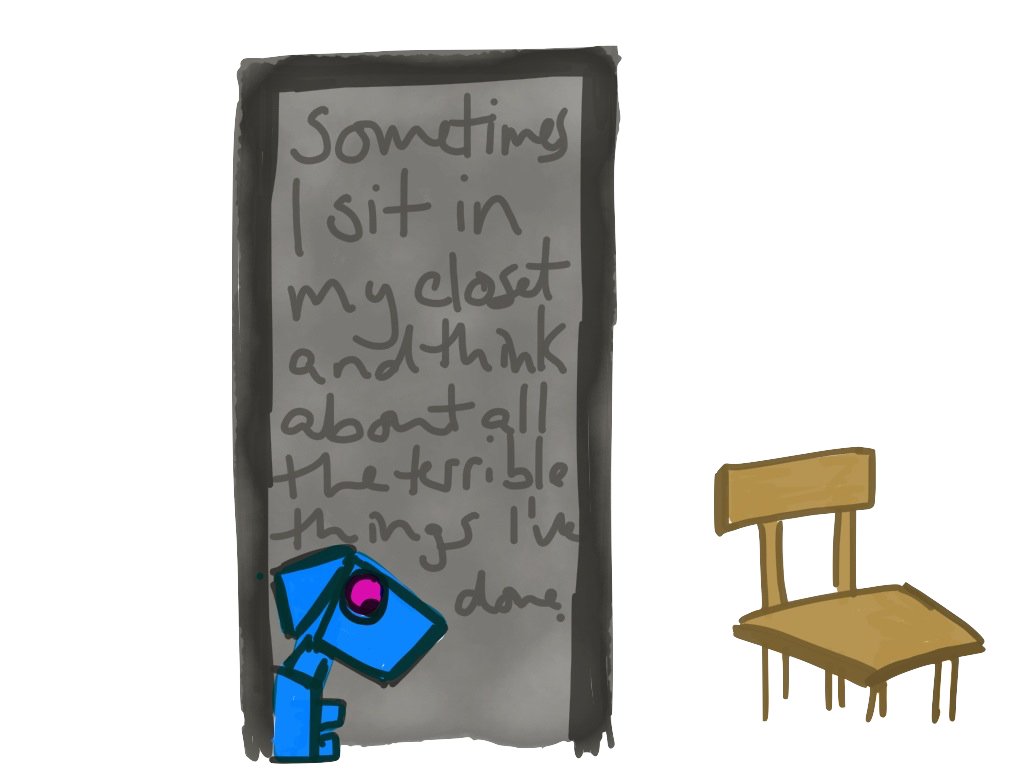 Sometimes
I sit in
my closet
and think
about all
the terrible
things I've
done.